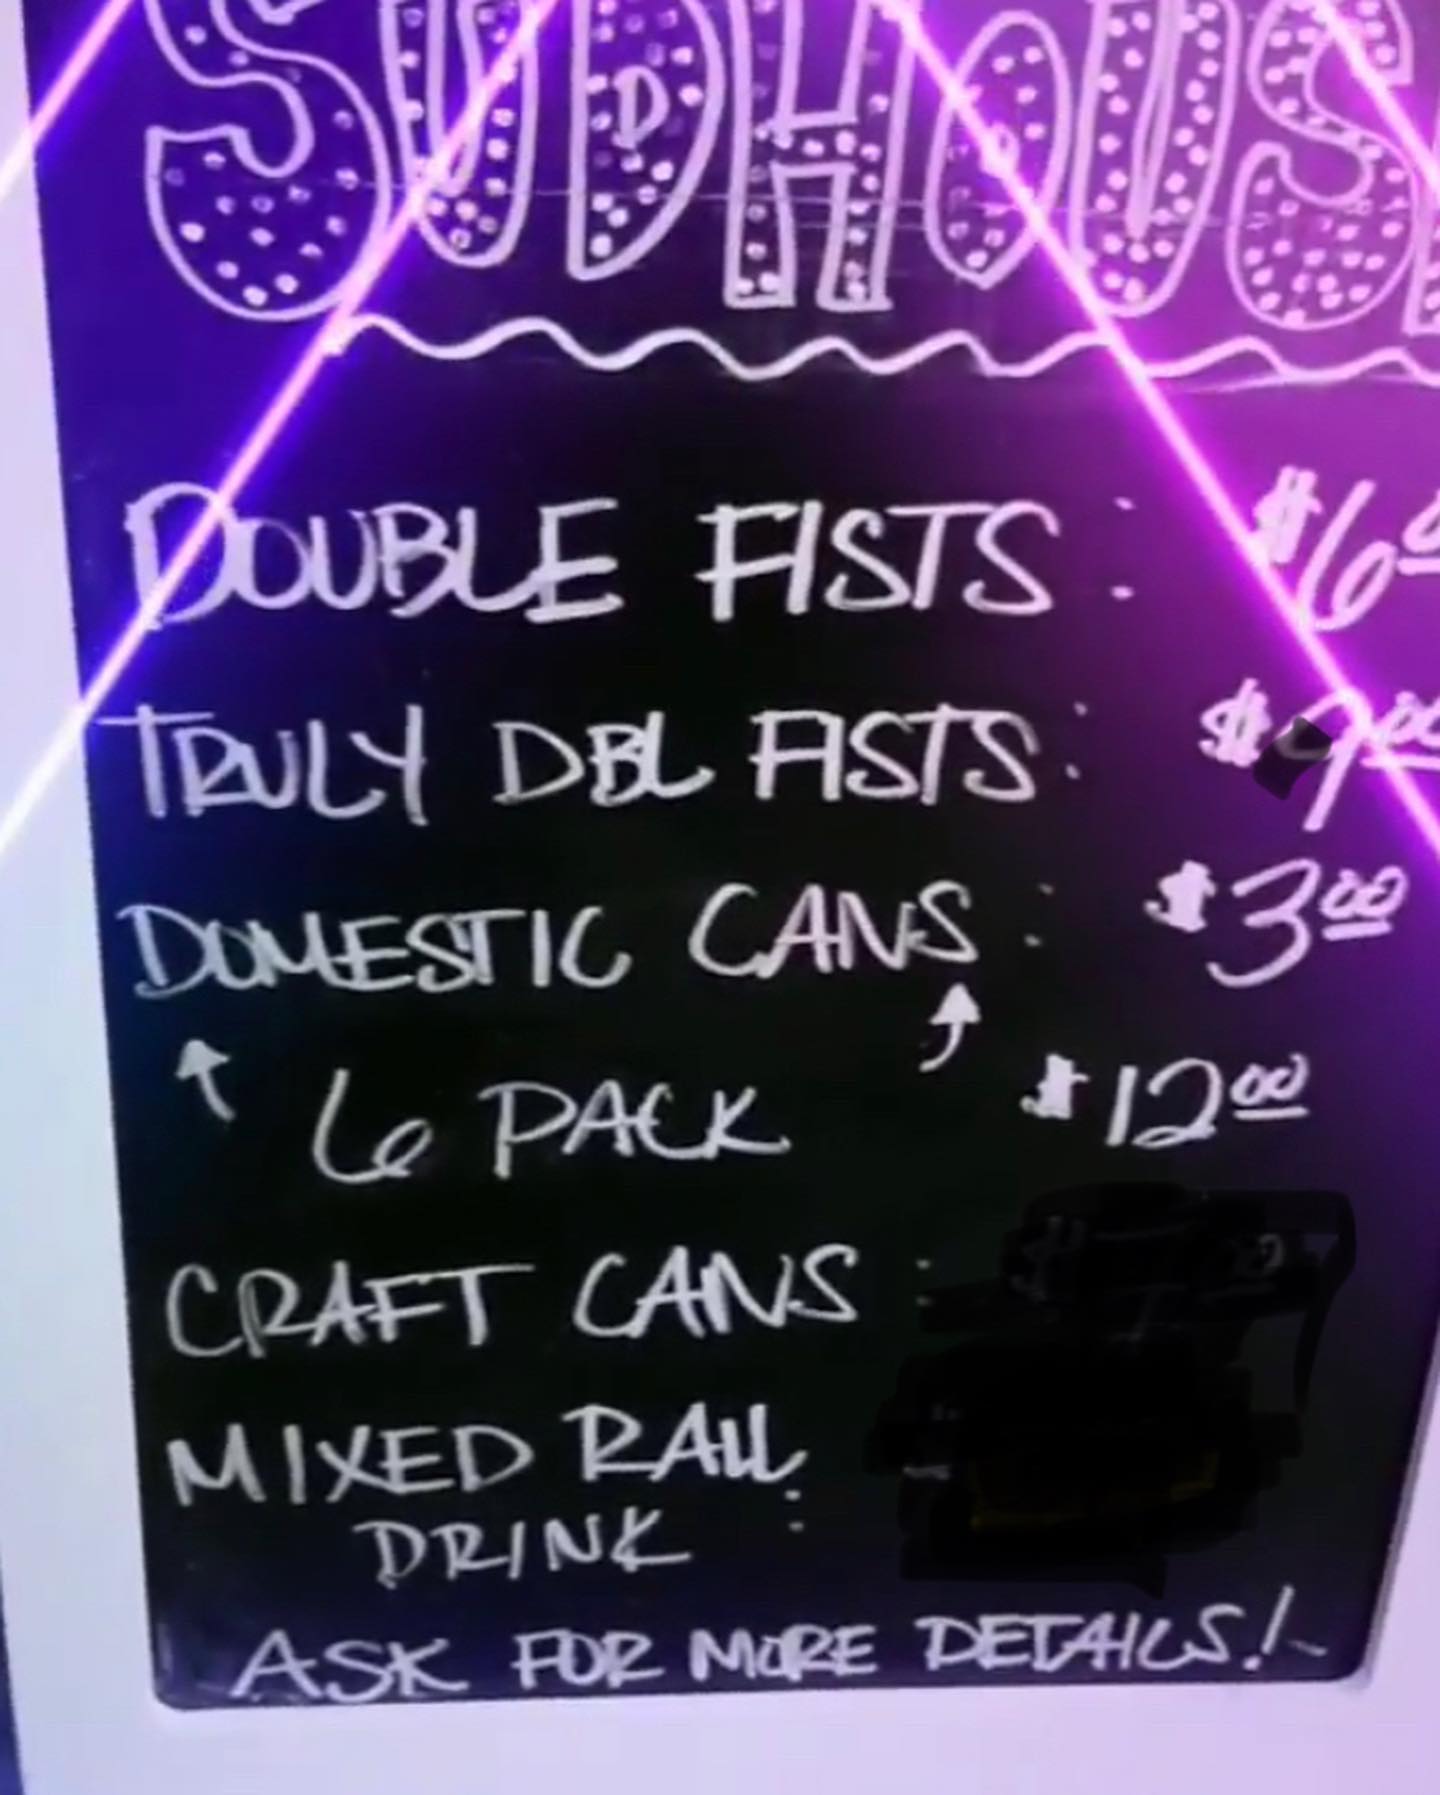 SUDHOUS
DOUBLE FISTS: $6
TRULY DBL FISTS: $9.00
DOMESTIC CANS: $3.00
6 PACK $12.00
CRAFT CANS:
MIXED RAIL
DRINK :
ASK FOR MORE DETAILS!